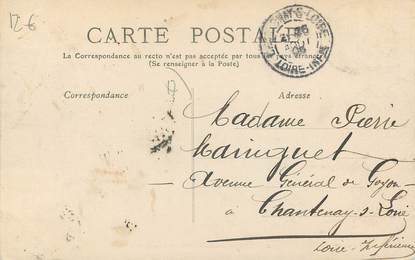 12 €
CARTE POSTALE
La Correspondance au recto n'est pas acceptée par tous les pays étrangers
(Se renseigner à la Poste)
Correspondance
Adresse
Madame Pierre
Avenue Général de Goyon
à Chantenay-s-Loire
Loire-Inférieure
LOIRE-INFRE